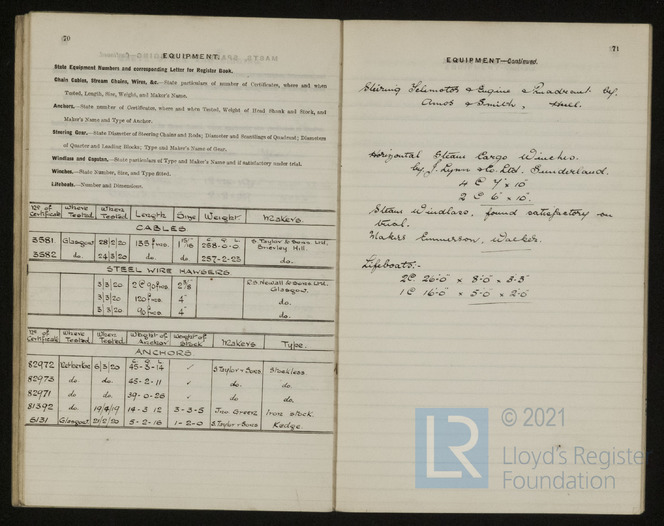 70
EQUIPMENT.
State Equipment Numbers and corresponding Letter for Register Book.
Chain Cables, Stream Chains, Wires, &c.—State particulars of number of Certificates, where and when
Tested, Length, Size, Weight, and Maker's Name.
Anchors.—State number of Certificates, where and when Tested, Weight of Head Shank and Stock, and
Maker's Name and Type of Anchor.
Steering Gear.—State Diameter of Steering Chains and Rods; Diameter and Scantlings of Quadrant; Diameters
of Quarter and Leading Blocks; Type and Maker's Name of Gear.
Windlass and Capstan.—State particulars of Type and Maker's Name and if satisfactory under trial.
Winches.—State Number, Size, and Type fitted.
Lifeboats.—Number and Dimensions.
No of Certificate Where Tested When Tested Length Size Weight Makers
CABLES
3581 Glasgow 28/2/20 135 fms. 1 15/16 268-0-0 S. Taylor & Sons Ltd. Brierley Hill
3582 do. 24/3/20 do. do 257-2-23 do.
STEEL WIRE HAWSERS
3/3/20 2 @ 90 fms 2 3/8 R.S. Newall & Sons Ltd. Glasgow.
3/3/20 120 fms. 4" do.
3/3/20 90 fms 4" do.
No of Certificate Where Tested When Tested Weight of Anchor Weight of Stock Makers Type.
ANCHORS
82972 Netherton 6/3/20 45-3-14 ✓ S Taylor & Sons Stockless
82973 do do. 45-2-11 ✓ do. do.
82971 do do 39-0-26 ✓ do do.
81392 do. 19/4/19 14-3-12 3-3-5 Jno Green Iron stock.
6131 Glasgow 21/2/20 5-2-16 1-2-0 S Taylor & Sons Kedge.
71
EQUIPMENT—Continued.
Steering Telemotor & Engine & Quadrant by.
Amos & Smith, Hull.
Horizontal Steam Cargo Winches.
by J. Lynn & Co. Ltd. Sunderland.
4 @ 7" x 10"
2 @ 6" x 10".
Steam Windlass, found satisfactory on
trial.
Makers Emmerson, Walker.
Lifeboats:-
2 @ 26'0" x 8'0" x 3.3"
1 @ 16'0" x 5'0" x 2'0"
© 2021
LR
Lloyd's Register
Foundation